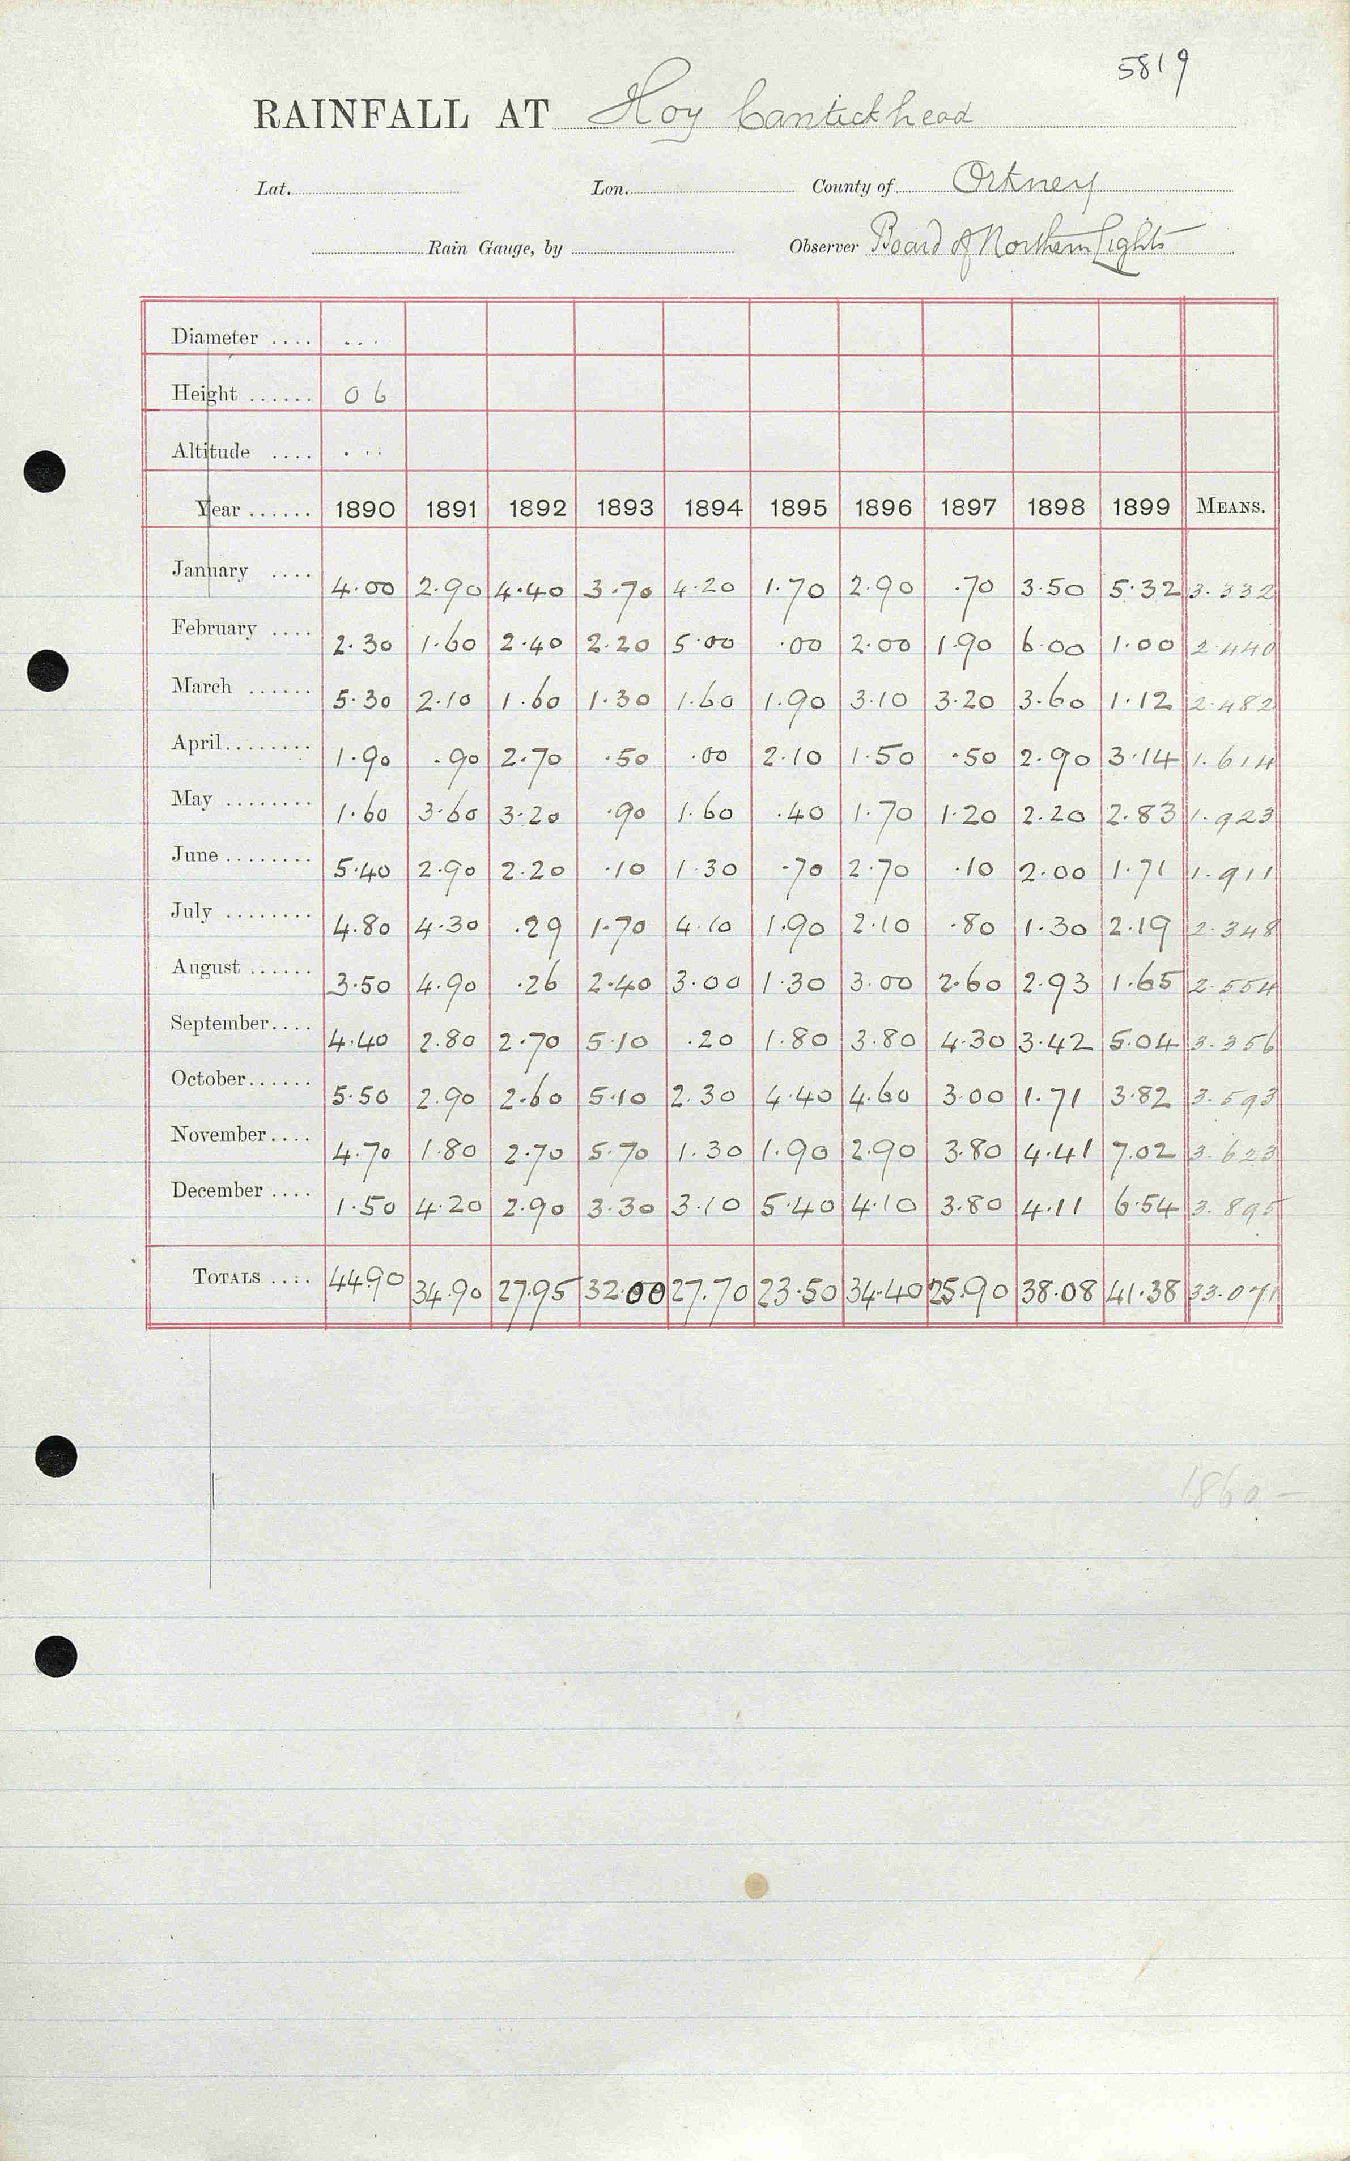 5819
RAINFALL AT Hoy Cantickhead
Lat. Lon. County of Orkney
Rain Gauge, by Observer Board of Northern Lights
Diameter .... ...
Height ...... 0 6
Altitude .... ...
Year ...... 1890 1891 1892 1893 1894 1895 1896 1897 1898 1899 MEANS.
January .... 4.00 2.90 4.40 3.70 4.20 1.70 2.90 .70 3.50 5.32 3.332
February .... 2.30 1.60 2.40 2.20 5.00 .00 2.00 1.90 6.00 1.00 2.440
March ...... 5.30 2.10 1.60 1.30 1.60 1.90 3.10 3.20 3.60 1.12 2.482
April........ 1.90 .90 2.70 .50 .00 2.10 1.50 .50 2.90 3.14 1.614
May ........ 1.60 3.60 3.20 .90 1.60 .40 1.70 1.20 2.20 2.83 1.923
June ........ 5.40 2.90 2.20 .10 1.30 .70 2.70 .10 2.00 1.71 1.911
July ........ 4.80 4.30 .29 1.70 4.10 1.90 2.10 .80 1.30 2.19 2.348
August ...... 3.50 4.90 .26 2.40 3.00 1.30 3.00 2.60 2.93 1.65 2.554
September.... 4.40 2.80 2.70 5.10 .20 1.80 3.80 4.30 3.42 5.04 3.356
October...... 5.50 2.90 2.60 5.10 2.30 4.40 4.60 3.00 1.71 3.82 3.593
November.... 4.70 1.80 2.70 5.70 1.30 1.90 2.90 3.80 4.41 7.02 3.623
December .... 1.50 4.20 2.90 3.30 3.10 5.40 4.10 3.80 4.11 6.54 3.895
TOTALS .... 44.90 34.90 27.95 32.00 27.70 23.50 34.40 25.90 38.08 41.38 33.071
1860 –